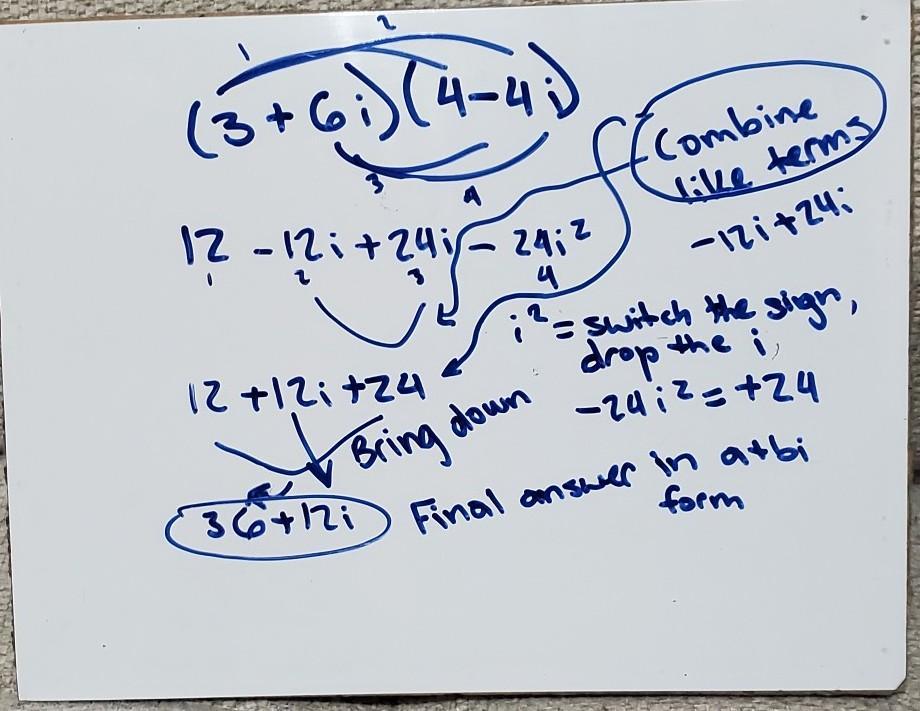 1 2
(3+6i)(4-4i)
3 4
Combine
like terms
-12i+24i
12 -12i+24i - 24i²
1 2 3 4
i² = switch the sign,
drop the i,
-24i² = +24
12 +12i +24
Bring down
36+12i
Final answer in a+bi
form